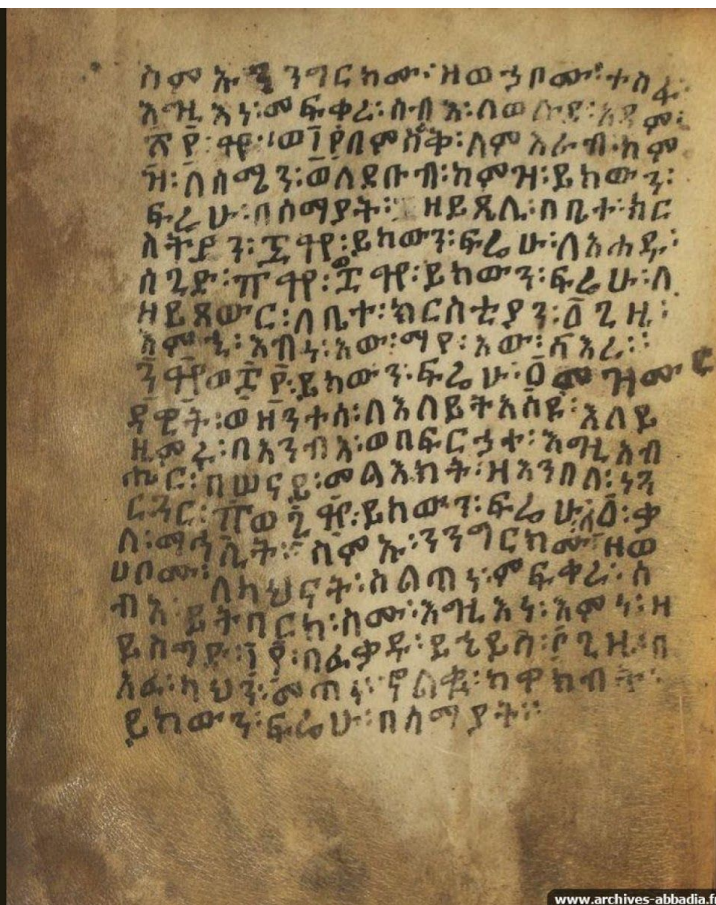 ስምኡ፡ ንንግርክሙ፡ ዘወኃቦሙ፡ ተስፋ፡
እግዚእነ፡ መፍቀሬ፡ ሰብእ፡ ለወልደ፡ አዳም፡
በምሥራቅ፡ ለምእራብ፡ ከም
ዝ፡ ለሰሜን፡ ወለደቡብ፡ ከምዝ፡ ይከውን፡
ፍሬሁ፡ በሰማያት፡ ዘይጼሊ፡ በቤተ፡ ክር
ስትያን፡ ፷ ፼፡ ይከውን፡ ፍሬሁ፡ ለአሐዱ፡
ሰጊድ፡ ፼፡ ፼፡ ይከውን፡ ፍሬሁ፡ ለ
ዘይጸውር፡ ለቤተ፡ ክርስቲያን፡ ፩ ጊዜ፡
እመኒ፡ እብነ፡ አው፡ ማየ፡ አው፡ ሣእረ፡
ይከውን፡ ፍሬሁ፡ ፩ መዝሙር
ዳዊት፡ ወዘንተሰ፡ ለእለ ይትአሰዩ፡ እለ ይ
ዜምሩ፡ በአንብዕ፡ ወበፍርኃተ፡ እግዚአብ
ሔር፡ በሠናይ፡ መልእክት፡ ዘእንበለ፡ ነጓ
ርጓር፡ ይከውን፡ ፍሬሁ፡ ለ፩፡ ቃ
ለ፡ ማኅሌት፡ ስምኡ፡ ንንግርክሙ፡ ዘወ
ሀቦሙ፡ ለካህናት፡ ስልጠነ፡ ምፍቀሬ፡ ሰ
ብእ፡ ይትባርክ፡ ስሙ፡ እግዚእነ፡ እምነ፡ ዘ
ይሰግድ፡ በፈቃዱ፡ ይኄይስ፡ ፩ ጊዜ፡ በ
አፈ፡ ካህን፡ መጠነ፡ ኆልቁ፡ ከዋክብት፡
ይከውን፡ ፍሬሁ፡ በሰማያት።
www.archives-abbadia.f